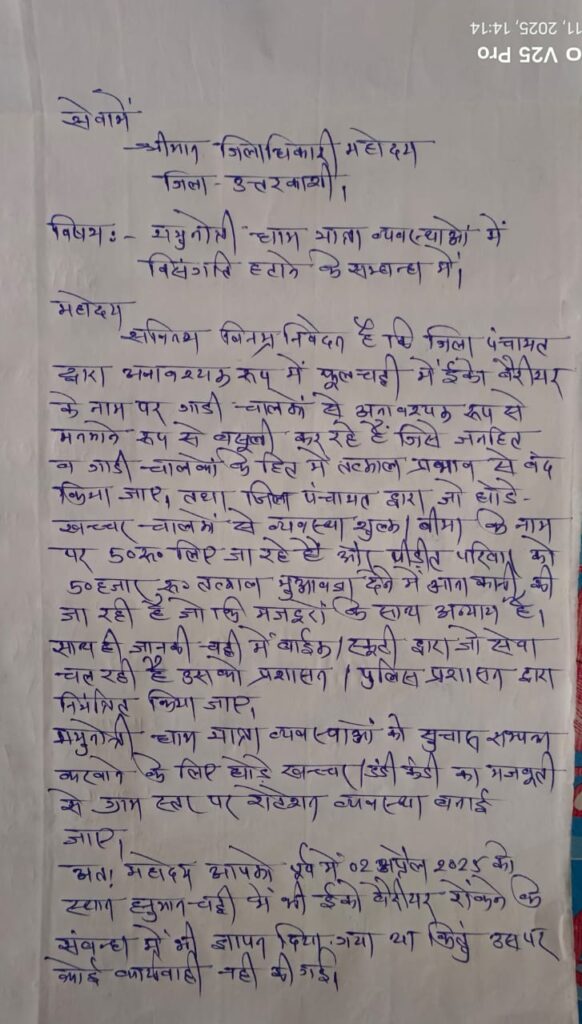 11, 2025, 14:14
O V25 Pro
सेवामें
श्रीमान जिलाधिकारी महोदय
जिला - उत्तरकाशी।
विषय:- यमुनोत्री धाम यात्रा व्यवस्थाओं में
विसंगति हटाने के सम्बन्ध में।
महोदय
सविनय विनम्र निवेदन है कि जिला पंचायत
द्वारा अनावश्यक रूप में फूलचट्टी में ईको बैरीयर
के नाम पर गाडी चालकों से अनावश्यक रूप से
मनमाने रूप से वसूली कर रहे हैं जिसे जनहित
व गाडी चालकों के हित में तत्काल प्रभाव से बंद
किया जाए। तथा जिला पंचायत द्वारा जो घोडे-
खच्चर चालकों से व्यवस्था शुल्क / बीमा के नाम
पर 50रू० लिए जा रहे हैं और पीड़ीत परिवार को
50 हजार रू० तत्काल मुआवजा देने में आना कानी की
जा रही है जो कि मजदूरों के साथ अन्याय है।
साथ ही जानकी चट्टी में बाईक / स्कूटी द्वारा जो सेवा
चल रही है उसको प्रशासन / पुलिस प्रशासन द्वारा
नियंत्रित किया जाए।
यमुनोत्री धाम यात्रा व्यवस्थाओं को सुचारू सम्पन्न
करवाने के लिए घोड़े खच्चर / डंडी कंडी का मजबूती
से ग्राम स्तर पर रोटेशन व्यवस्था बनाई
जाए।
अतः महोदय आपको पूर्व में 02 अप्रैल 2025 को
स्थान हनुमान चट्टी में भी ईको बैरीयर रोकने के
संबन्ध में भी ज्ञापन दिया गया था किंतु उस पर
कोई कार्यवाही नही की गई।